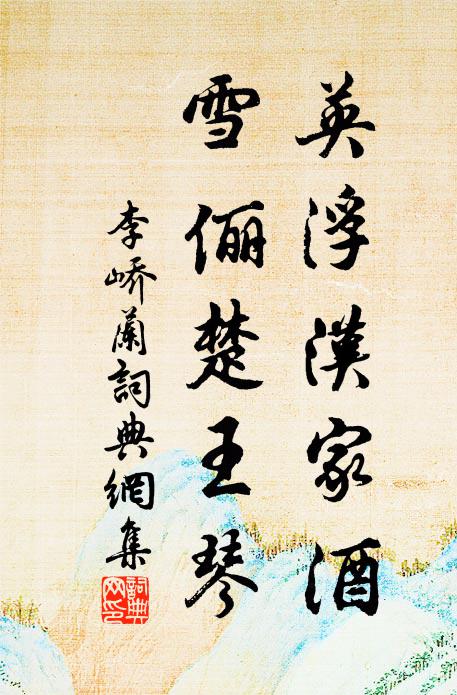 英浮漢家酒
雪儷楚王琴
李嶠蘭詞典網集
詞典網印